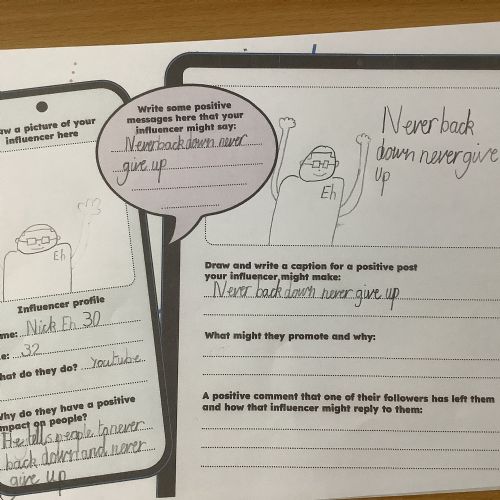 aw a picture of your
influencer here
Eh
Influencer profile
me: Nick Eh 30
e: 32
hat do they do? Youtube
Why do they have a positive
mpact on people?
He tells people to never
back down and never
give up
Write some positive
messages here that your
influencer might say:
Never back down never
give up
Eh
Never back
down never give
up
Draw and write a caption for a positive post
your influencer might make:
Never back down never give up
What might they promote and why:
A positive comment that one of their followers has left them
and how that influencer might reply to them: